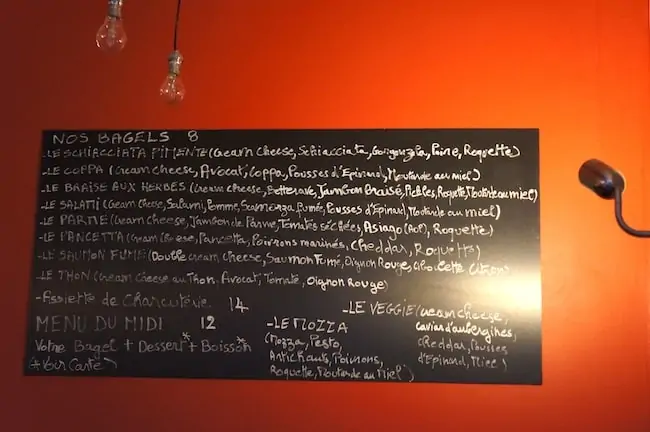 NOS BAGELS 8
-LE SCHIACCIATA PIMENTE (Cream Cheese, Schiacciata, Gorgonzola, Poire, Roquette)
-LE COPPA (Cream Cheese, Avocat, Coppa, Pousses d'Epinard, Moutarde au miel)
-LE BRAISE AUX HERBES (Cream cheese, Betterave, Jambon Braisé, Pickles, Roquette, Moutarde au miel)
-LE SALAMI (Cream Cheese, Salami, Pomme, Scamorza Fumée, Pousses d'Epinard, Moutarde au miel)
-LE PARME (Cream Cheese, Jambon de Parme, Tomates séchées, Asiago (AOP), Roquette)
-LE PANCETTA (Cream Cheese, Pancetta, Poivrons marinés, Cheddar, Roquette)
-LE SAUMON FUME (Double cream Cheese, Saumon Fumé, Oignon Rouge, Ciboulette Citron)
-LE THON (Cream Cheese au Thon, Avocat, Tomate, Oignon Rouge)
-Assiette de Charcuterie 14
MENU DU MIDI 12
Votre Bagel + Dessert* + Boisson*
*Voir Carte
-LE MOZZA
(Mozza, Pesto,
Artichauts, Poivrons,
Roquette, Moutarde au Miel)
-LE VEGGIE (Cream cheese,
caviar d'aubergines,
Cheddar, Pousses
d'Epinard, Miel)